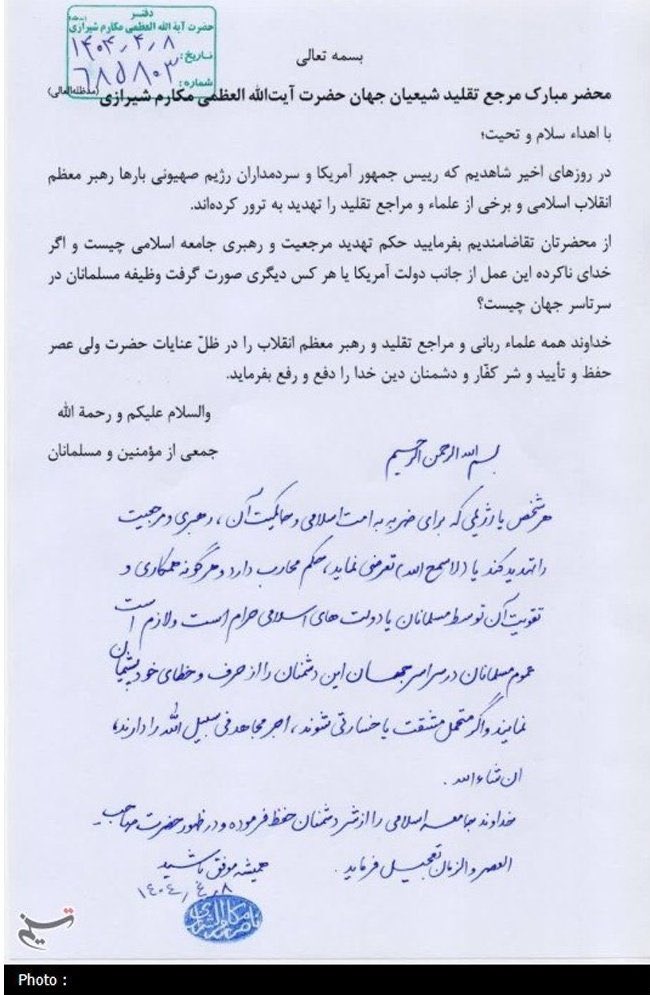 دفتر
حضرت آیة الله العظمی مکارم شیرازی
تاریخ: ۱۴۰۴/۴/۸
شماره: ۶۸۵۸۰۳
بسمه تعالی
محضر مبارک مرجع تقلید شیعیان جهان حضرت آیت‌الله العظمی مکارم شیرازی (مدظله‌العالی)
با اهداء سلام و تحیت؛
در روزهای اخیر شاهدیم که رییس جمهور آمریکا و سردمداران رژیم صهیونی بارها رهبر معظم
انقلاب اسلامی و برخی از علماء و مراجع تقلید را تهدید به ترور کرده‌اند.
از محضرتان تقاضامندیم بفرمایید حکم تهدید مرجعیت و رهبری جامعه اسلامی چیست و اگر
خدای ناکرده این عمل از جانب دولت آمریکا یا هر کس دیگری صورت گرفت وظیفه مسلمانان در
سرتاسر جهان چیست؟
خداوند همه علماء ربانی و مراجع تقلید و رهبر معظم انقلاب را در ظلّ عنایات حضرت ولی عصر
حفظ و تأیید و شر کفّار و دشمنان دین خدا را دفع و رفع بفرماید.
والسلام علیکم و رحمة الله
جمعی از مؤمنین و مسلمانان
بسم الله الرحمن الرحیم
هر شخص یا رژیمی که برای ضربه به امت اسلامی و حاکمیت آن، رهبری و مرجعیت
را تهدید کند یا (لا سمح الله) تعرضی نماید، حکم محارب دارد و هرگونه همکاری و
تقویت آن توسط مسلمانان یا دولت های اسلامی حرام است و لازم است
عموم مسلمانان در سراسر جهان این دشمنان را از حرف و خطای خود پشیمان
نمایند و اگر متحمل مشقت یا خسارتی شوند، اجر مجاهد فی سبیل الله را دارند،
ان شاء الله.
خداوند جامعه اسلامی را از شر دشمنان حفظ فرموده و در ظهور حضرت مولا صاحب
العصر و الزمان تعجیل فرماید.
همیشه موفق باشید
۱۴۰۴/۴/۸
تسنیم
Photo :